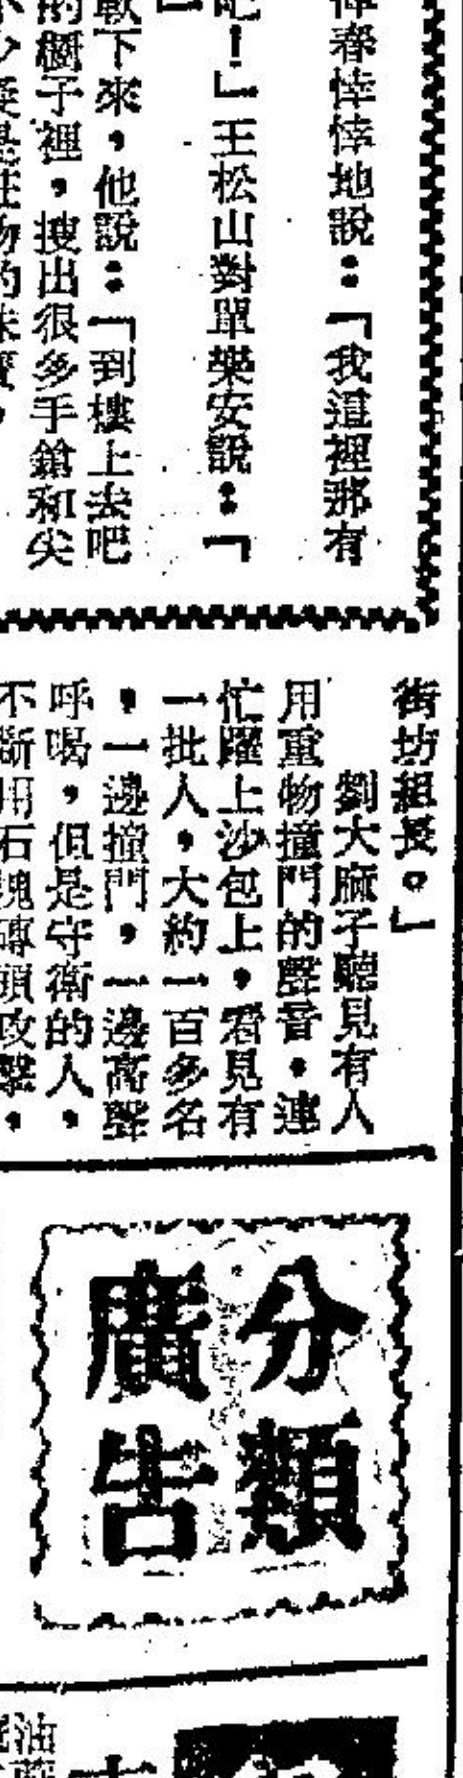 春悻悻地說：「我這裡那有
吧！」王松山對單樂安說：「
軟下來，他說：「到樓上去吧
的櫥子裡，搜出很多手鎗和尖
街坊組長。」
劉大麻子聽見有人
用重物撞門的聲音，連
忙躍上沙包上，看見有
一批人，大約一百多名
，一邊撞門，一邊高聲
呼喝，但是守衛的人，
不斷用石塊磚頭攻擊，
分類
廣告
油